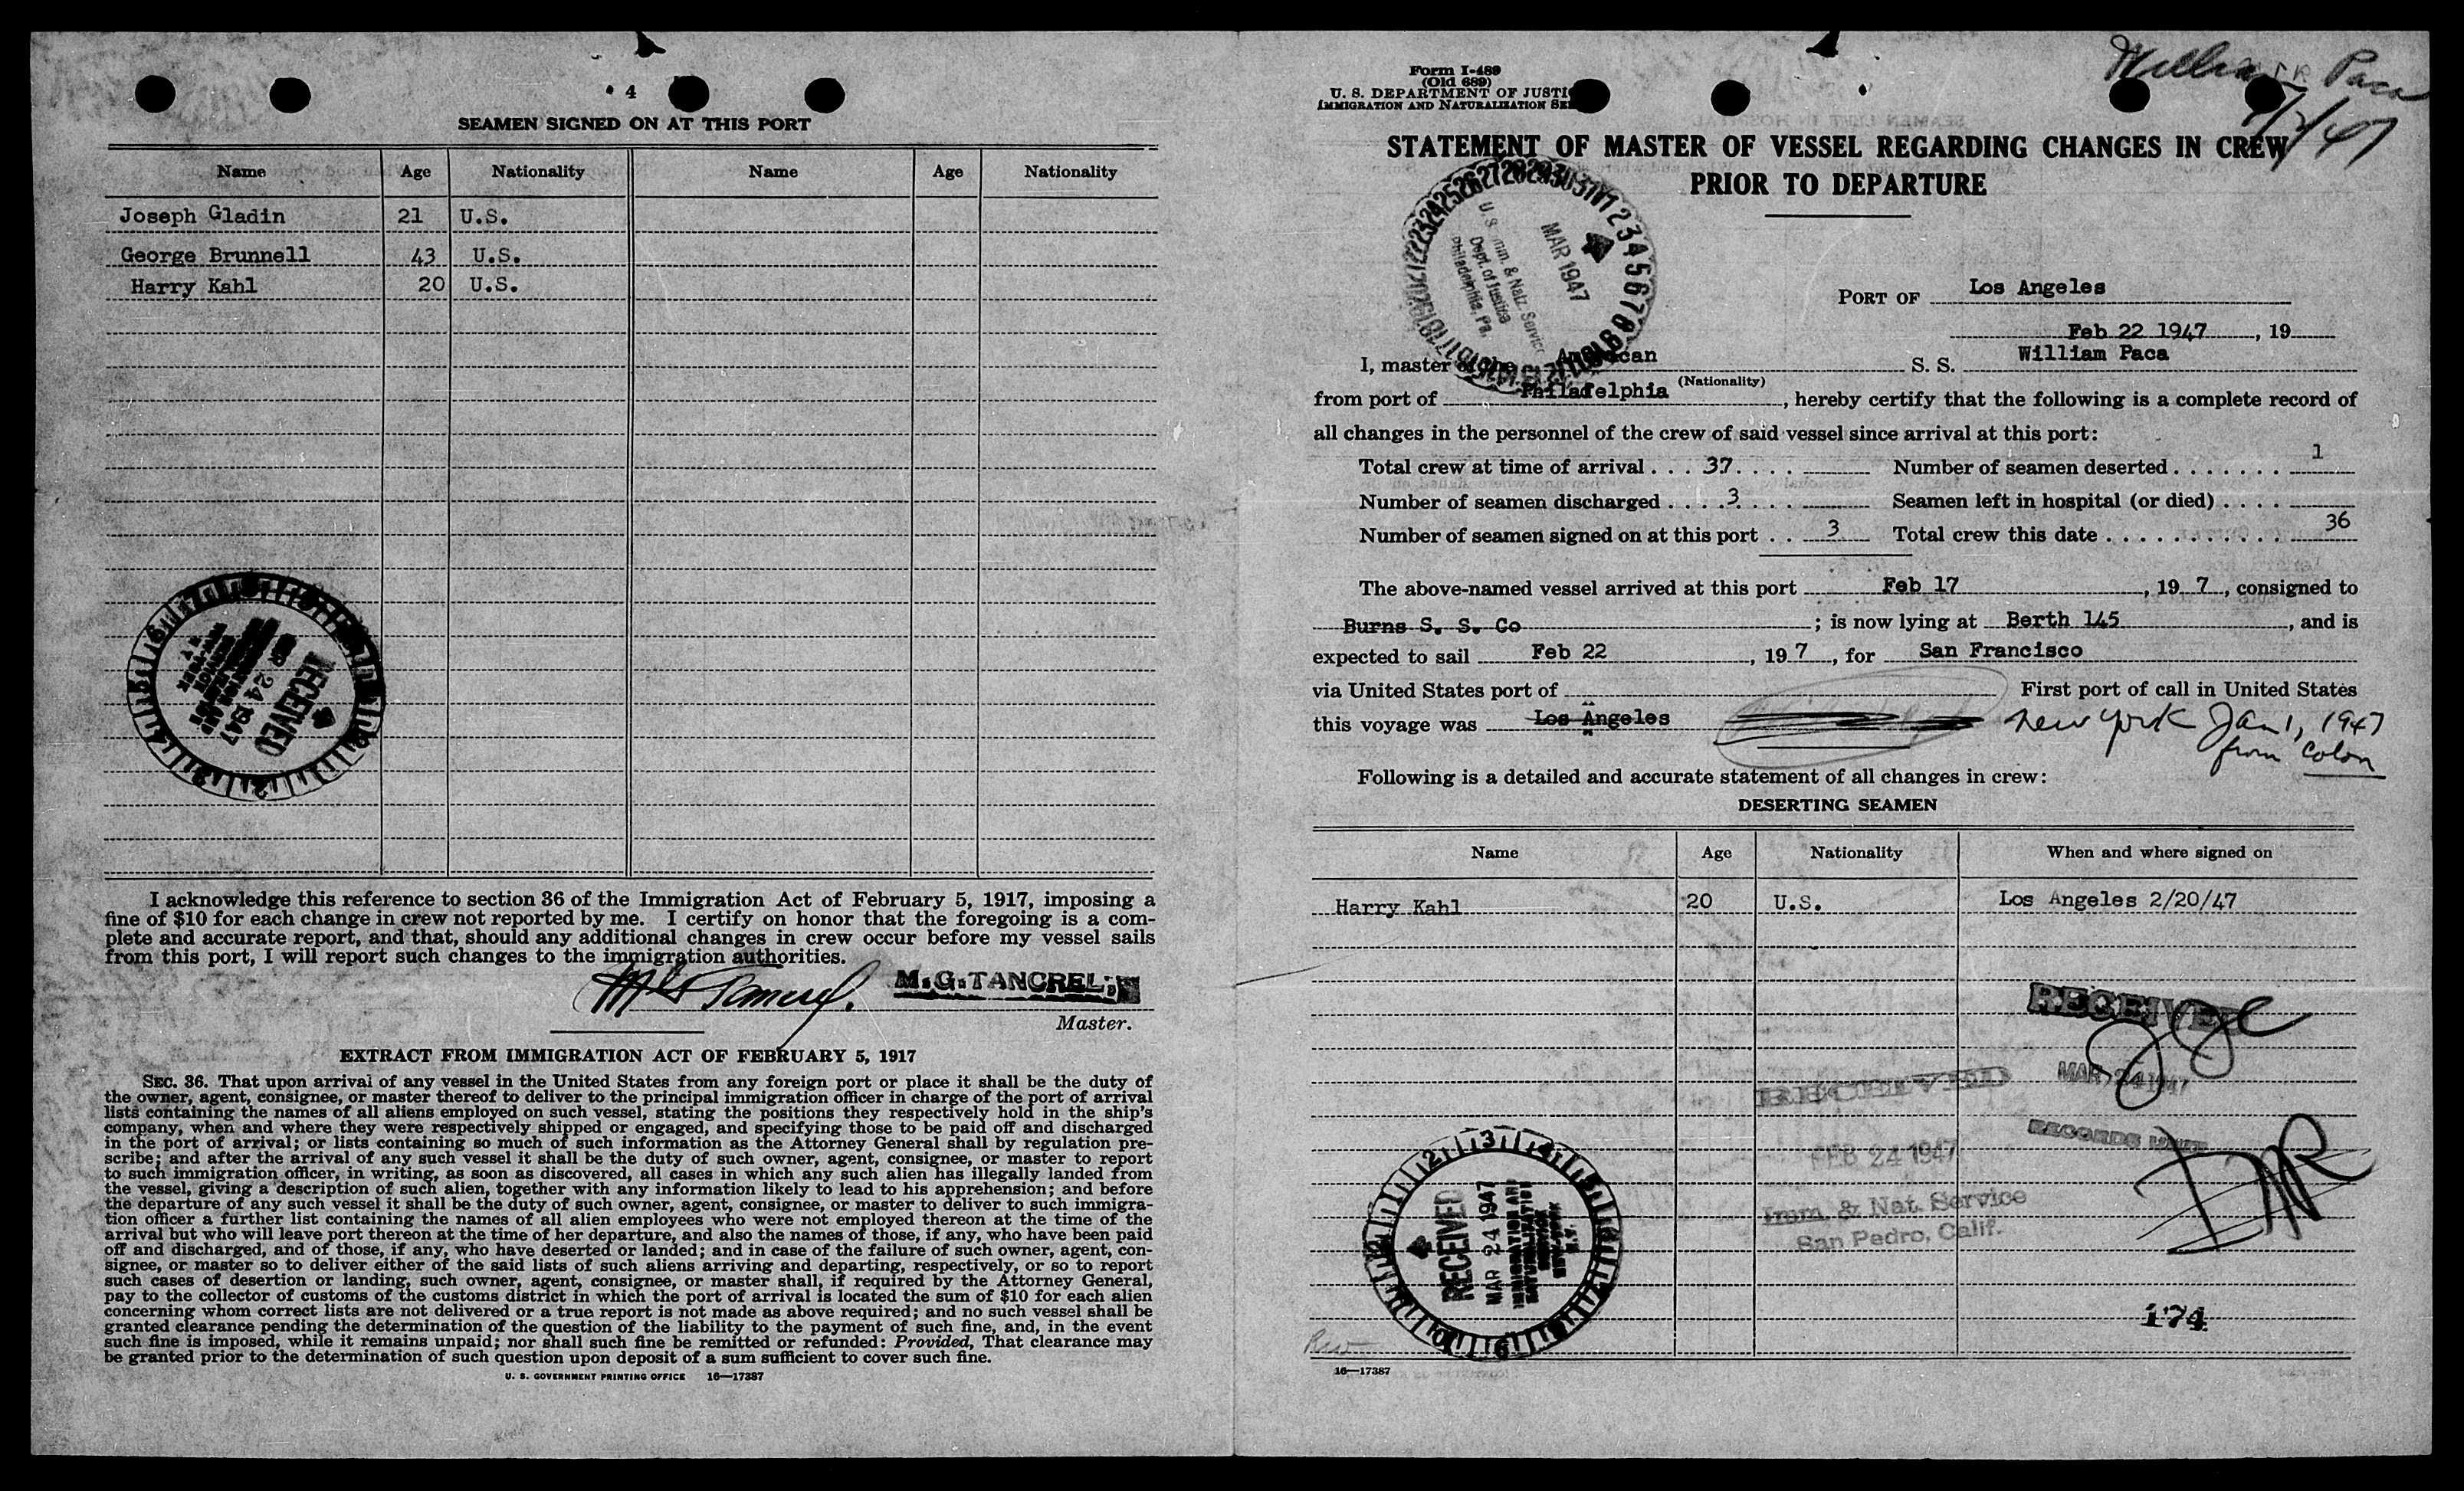 4
SEAMEN SIGNED ON AT THIS PORT
Name Age Nationality Name Age Nationality
Joseph Gladin 21 U.S.
George Brunnell 43 U.S.
Harry Kahl 20 U.S.
RECEIVED
24 1947
I acknowledge this reference to section 36 of the Immigration Act of February 5, 1917, imposing a
fine of $10 for each change in crew not reported by me. I certify on honor that the foregoing is a com-
plete and accurate report, and that, should any additional changes in crew occur before my vessel sails
from this port, I will report such changes to the immigration authorities.
M.G.TANCREL
Master.
EXTRACT FROM IMMIGRATION ACT OF FEBRUARY 5, 1917
SEC. 36. That upon arrival of any vessel in the United States from any foreign port or place it shall be the duty of
the owner, agent, consignee, or master thereof to deliver to the principal immigration officer in charge of the port of arrival
lists containing the names of all aliens employed on such vessel, stating the positions they respectively hold in the ship's
company, when and where they were respectively shipped or engaged, and specifying those to be paid off and discharged
in the port of arrival; or lists containing so much of such information as the Attorney General shall by regulation pre-
scribe; and after the arrival of any such vessel it shall be the duty of such owner, agent, consignee, or master to report
to such immigration officer, in writing, as soon as discovered, all cases in which any such alien has illegally landed from
the vessel, giving a description of such alien, together with any information likely to lead to his apprehension; and before
the departure of any such vessel it shall be the duty of such owner, agent, consignee, or master to deliver to such immigra-
tion officer a further list containing the names of all alien employees who were not employed thereon at the time of the
arrival but who will leave port thereon at the time of her departure, and also the names of those, if any, who have been paid
off and discharged, and of those, if any, who have deserted or landed; and in case of the failure of such owner, agent, con-
signee, or master so to deliver either of the said lists of such aliens arriving and departing, respectively, or so to report
such cases of desertion or landing, such owner, agent, consignee, or master shall, if required by the Attorney General,
pay to the collector of customs of the customs district in which the port of arrival is located the sum of $10 for each alien
concerning whom correct lists are not delivered or a true report is not made as above required; and no such vessel shall be
granted clearance pending the determination of the question of the liability to the payment of such fine, and, in the event
such fine is imposed, while it remains unpaid; nor shall such fine be remitted or refunded: Provided, That clearance may
be granted prior to the determination of such question upon deposit of a sum sufficient to cover such fine.
U. S. GOVERNMENT PRINTING OFFICE 16—17387
Form I-489
(Old 689)
U. S. DEPARTMENT OF JUSTI
IMMIGRATION AND NATURALIZATION SE
William Paca
STATEMENT OF MASTER OF VESSEL REGARDING CHANGES IN CREW
PRIOR TO DEPARTURE
MAR 1947
U. S. Imm. & Natz. Service
Dept. of Justice
Philadelphia, Pa.
PORT OF Los Angeles
Feb 22 1947, 19
I, master of the American S. S. William Paca
(Nationality)
from port of Philadelphia, hereby certify that the following is a complete record of
all changes in the personnel of the crew of said vessel since arrival at this port:
Total crew at time of arrival . . . 37 . . . . Number of seamen deserted . . . . . . . 1
Number of seamen discharged . . . . 3 . . . . Seamen left in hospital (or died) . . . .
Number of seamen signed on at this port . . 3 Total crew this date . . . . . . . . . . . 36
The above-named vessel arrived at this port Feb 17, 19 7, consigned to
Burns S. S. Co; is now lying at Berth 145, and is
expected to sail Feb 22, 19 7, for San Francisco
via United States port of First port of call in United States
this voyage was Los Angeles New York Jan 1, 1947
from Colon
Following is a detailed and accurate statement of all changes in crew:
DESERTING SEAMEN
Name Age Nationality When and where signed on
Harry Kahl 20 U.S. Los Angeles 2/20/47
RECEIVED
MAR 24 1947
RECORDS UNIT
RECEIVED
FEB 24 1947
Imm. & Nat. Service
San Pedro, Calif.
RECEIVED
MAR 24 1947
IMMIGRATION AND
NATURALIZATION
SERVICE
NEW YORK
N.Y.
174
16—17387